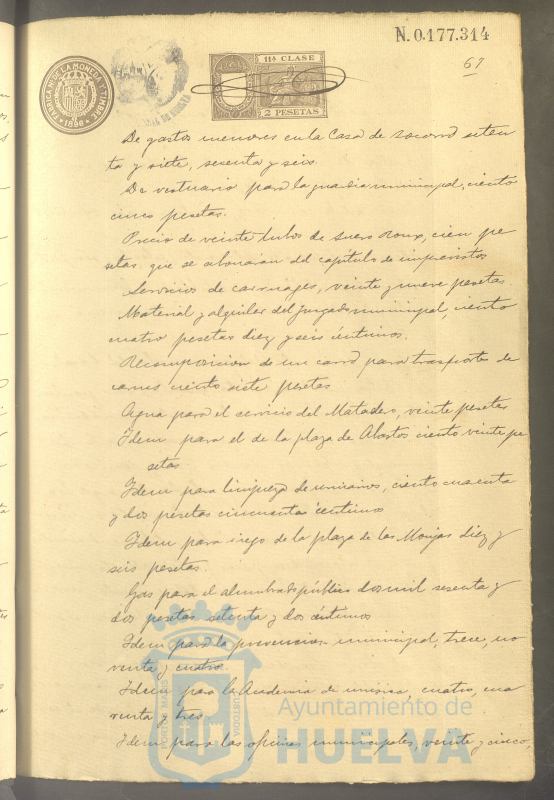 N. 0.177.314
61
FABRICA Nal. DE LA MONEDA Y TIMBRE
1896
11ª CLASE
2 PESETAS
De gastos menores en la Casa de socorro seten
ta y siete, sesenta y seis.
De vestuario para la guardia municipal, ciento
cinco pesetas.
Precio de veinte tubos de suero Roux, cien pe
setas, que se abonarán del capitulo de imprevistos
Servicios de carruages, veinte y nueve pesetas
Material y alquiler del Juzgado municipal, ciento
cuatro pesetas diez y seis céntimos.
Recomposicion de un carro para trasporte de
carnes ciento siete pesetas
Agua para el servicio del Matadero, veinte pesetas
Idem para el de la plaza de Abastos ciento veinte pe
setas
Idem para limpieza de urinarios, ciento cuarenta
y dos pesetas cincuenta centimos
Idem para riego de la plaza de las Monjas diez y
seis pesetas.
Gas para el alumbrado público dos mil sesenta y
dos pesetas setenta y dos céntimos
Idem para la prevencion municipal, trece, no
venta y cuatro
Idem para la Academia de música, cuatro, cua
renta y tres
Idem para las oficinas municipales, veinte y cinco,
Ayuntamiento de
HUELVA